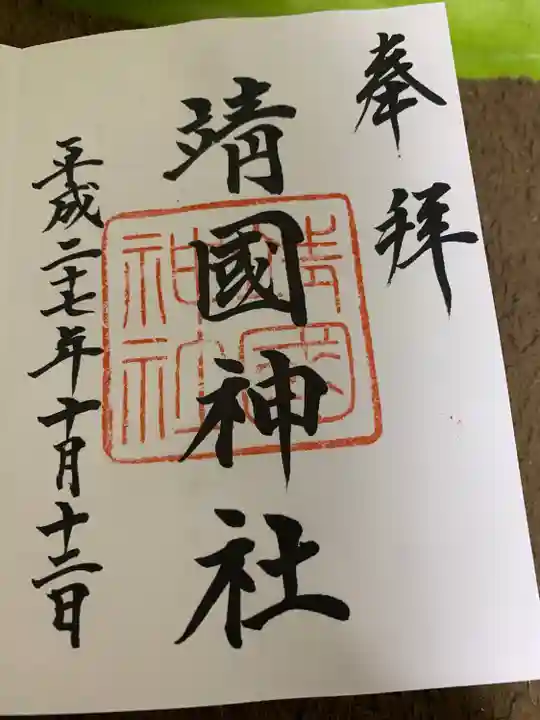 奉拝
靖國神社
平成二十七年十月十二日
靖國
神社